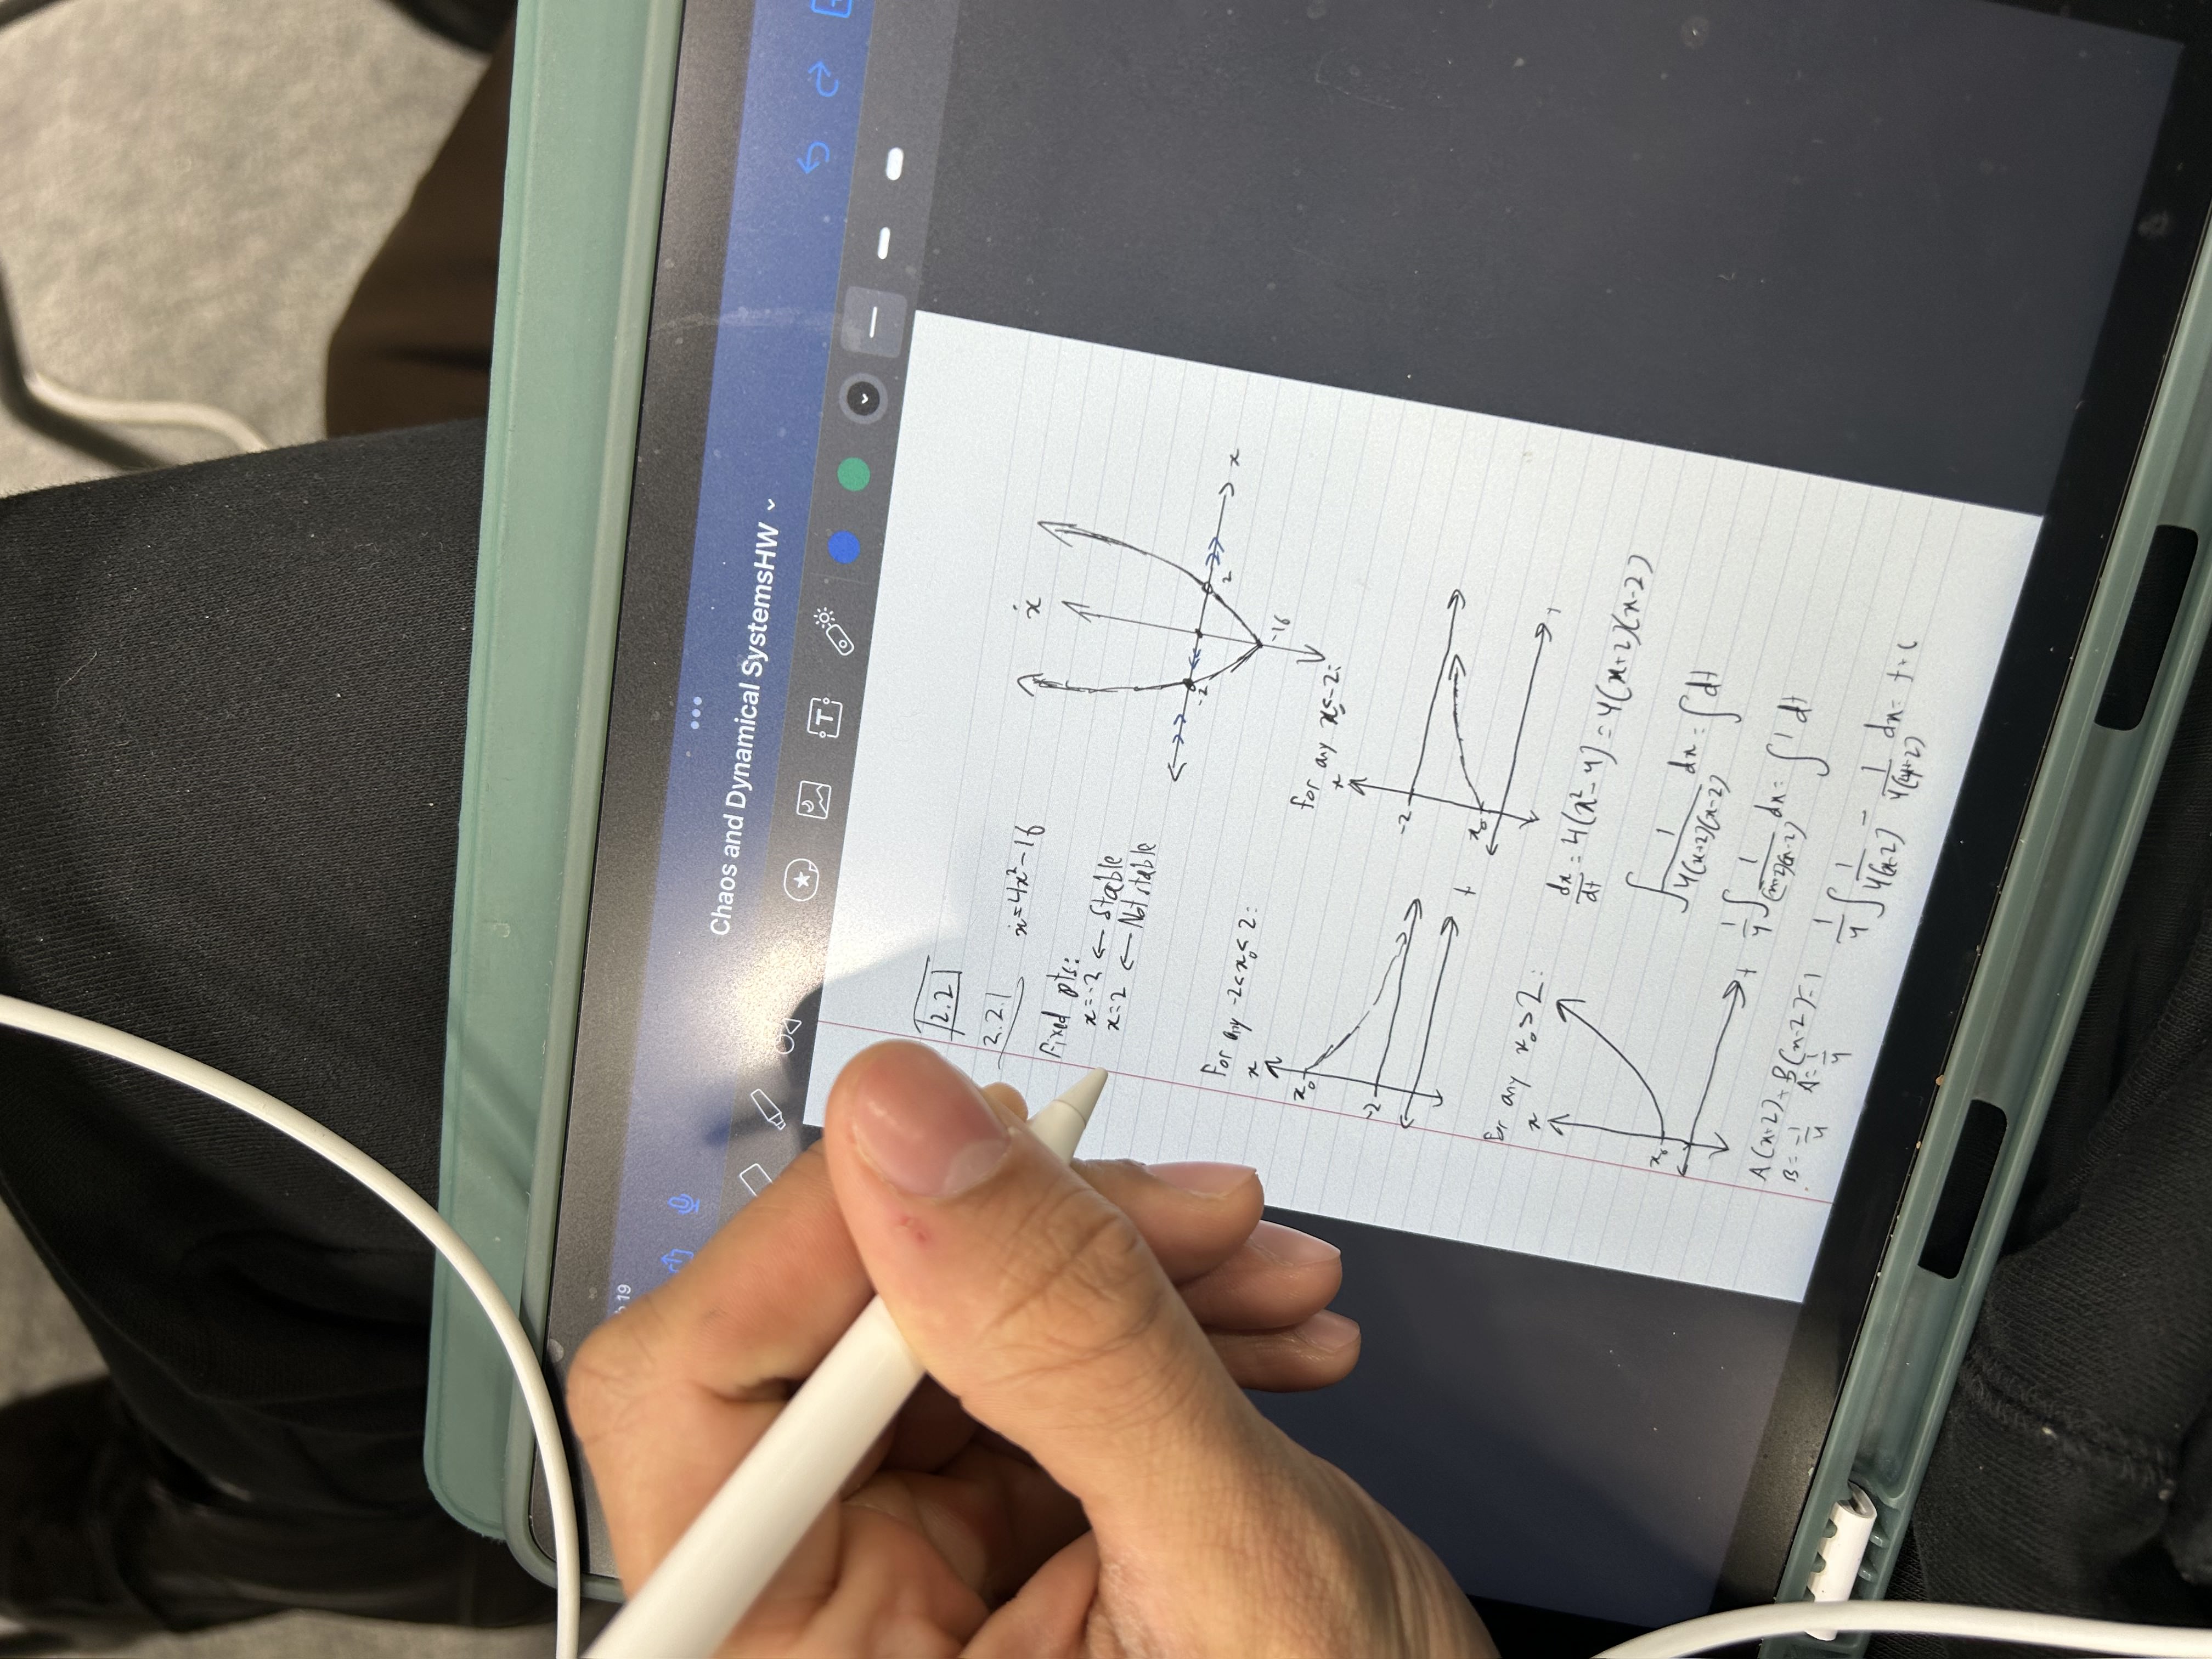 19
Chaos and Dynamical SystemsHW
T
2.2
2.2.1
ẋ=4x²-16
Fixed pts:
x=-2 ← Stable
x=2 ← Not stable
ẋ
-2
2
x
-16
For any -2<x₀<2:
x
x₀
-2
t
for any x₀<-2:
x
-2
x₀
t
For any x₀>2:
x
x₀
t
dx/dt = 4(x²-4) = 4(x+2)(x-2)
∫ 1/4(x+2)(x-2) dx = ∫dt
1/4 ∫ 1/(x+2)(x-2) dx = ∫1 dt
A(x+2)+B(x-2)=1
B=-1/4 A=1/4
1/4 ∫ 1/4(x-2) - 1/4(x+2) dx = t+C